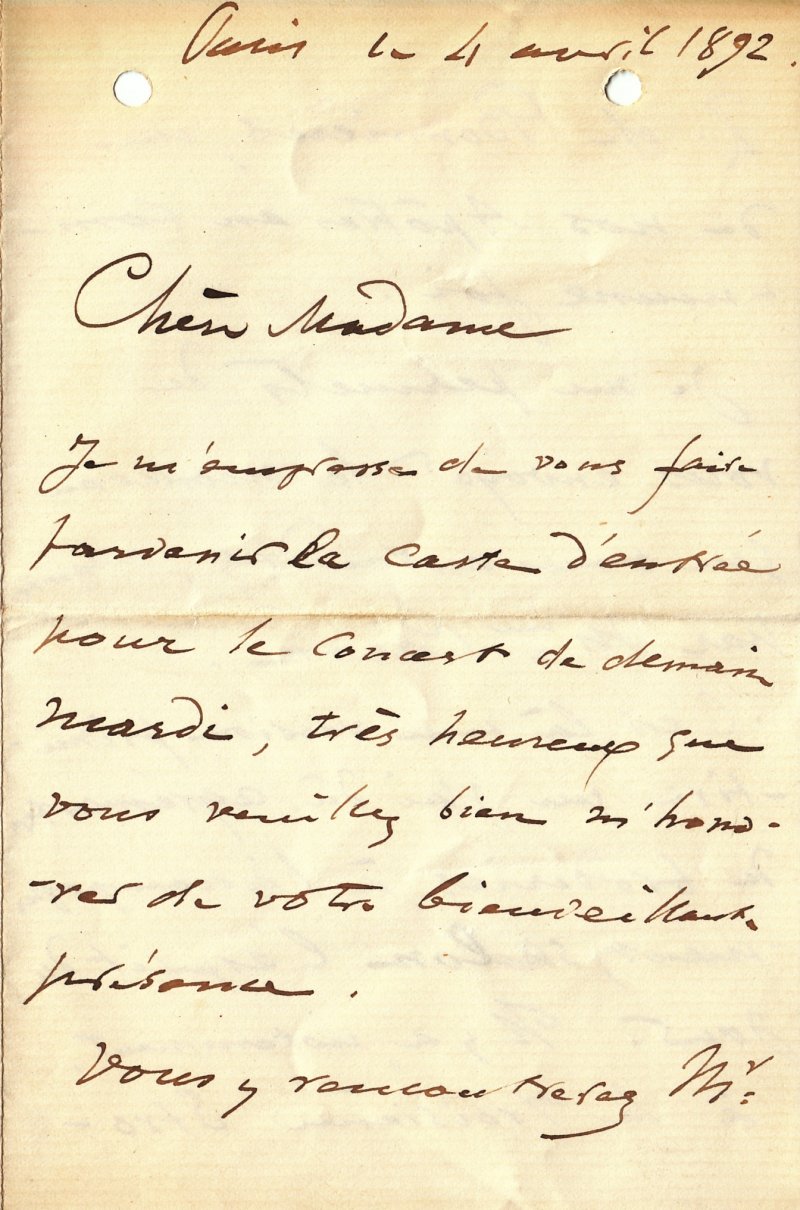 Paris le 4 avril 1892.
Chère Madame
Je m'empresse de vous faire
parvenir la carte d'entrée
pour le concert de demain
mardi, très heureux que
vous veuillez bien m'hono-
-rer de votre bienveillante
présence.
Vous y rencontrerez Mr: